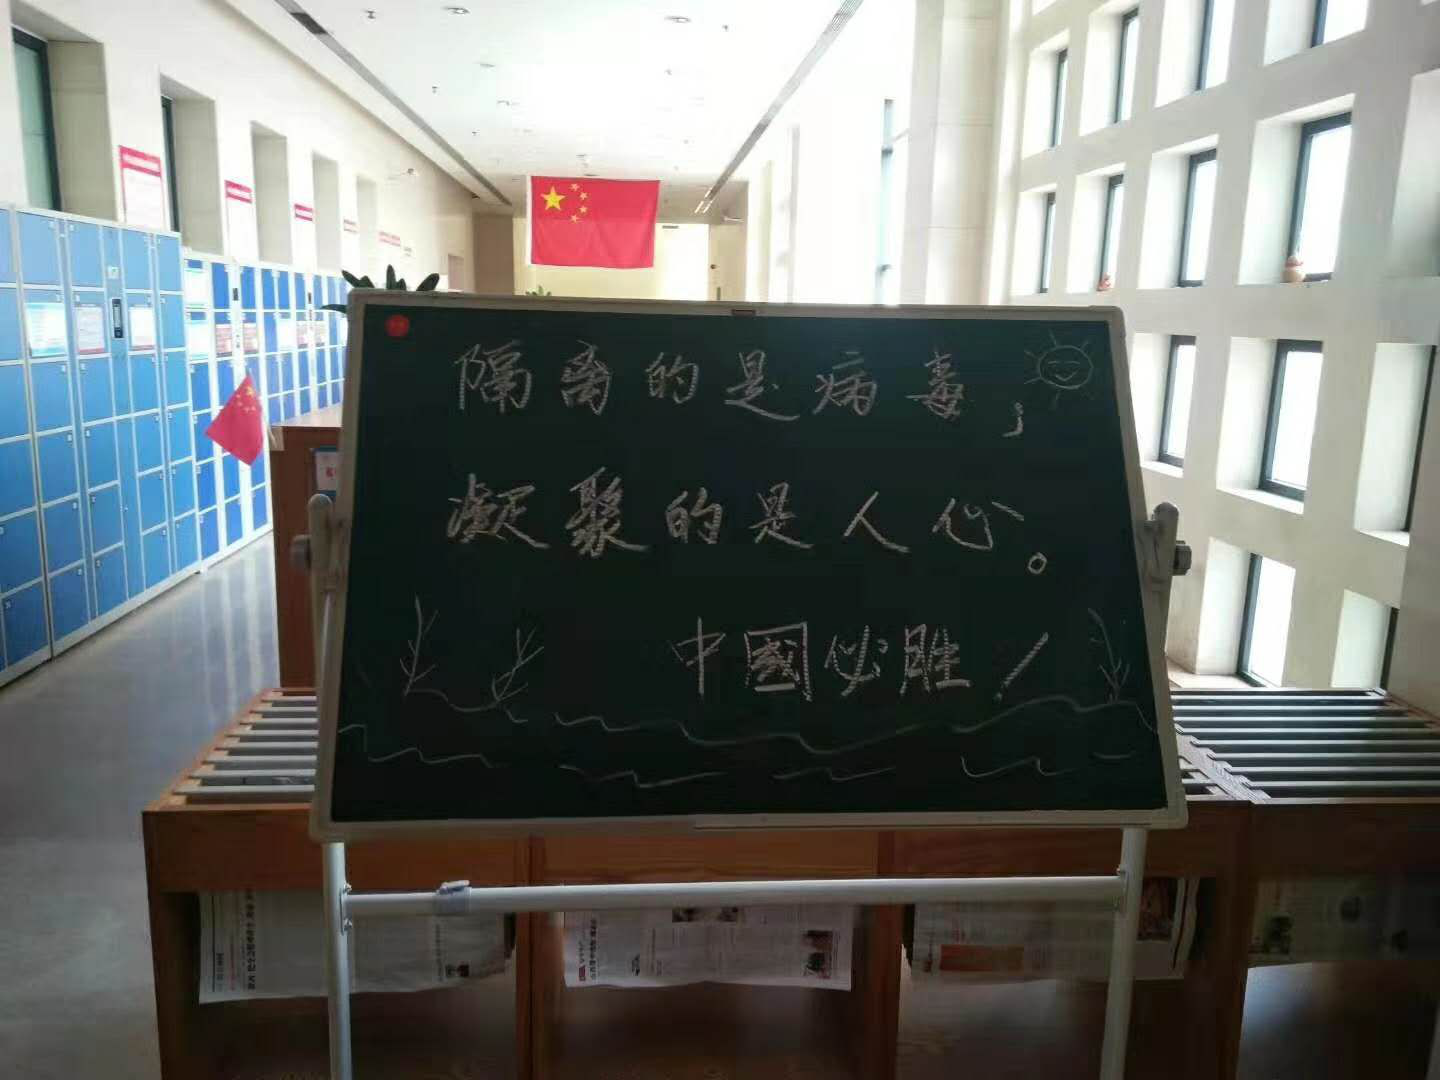 隔离的是病毒，
凝聚的是人心。
中國必胜！